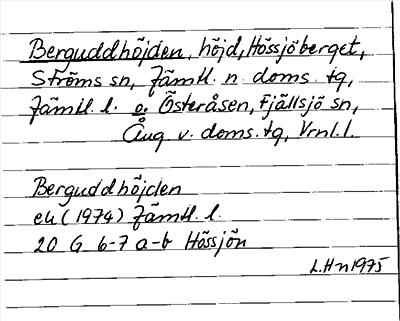 Berguddhöjden, höjd, Hössjöberget,
Ströms sn, Jämtl. n. doms. tg,
Jämtl. l. o. Österåsen, Fjällsjö sn,
Ång v. doms. tg, Vrnl. l.
Berguddhöjden
ek (1974) Jämtl. l.
20 G 6-7 a-b Hössjön
L.Hn 1975